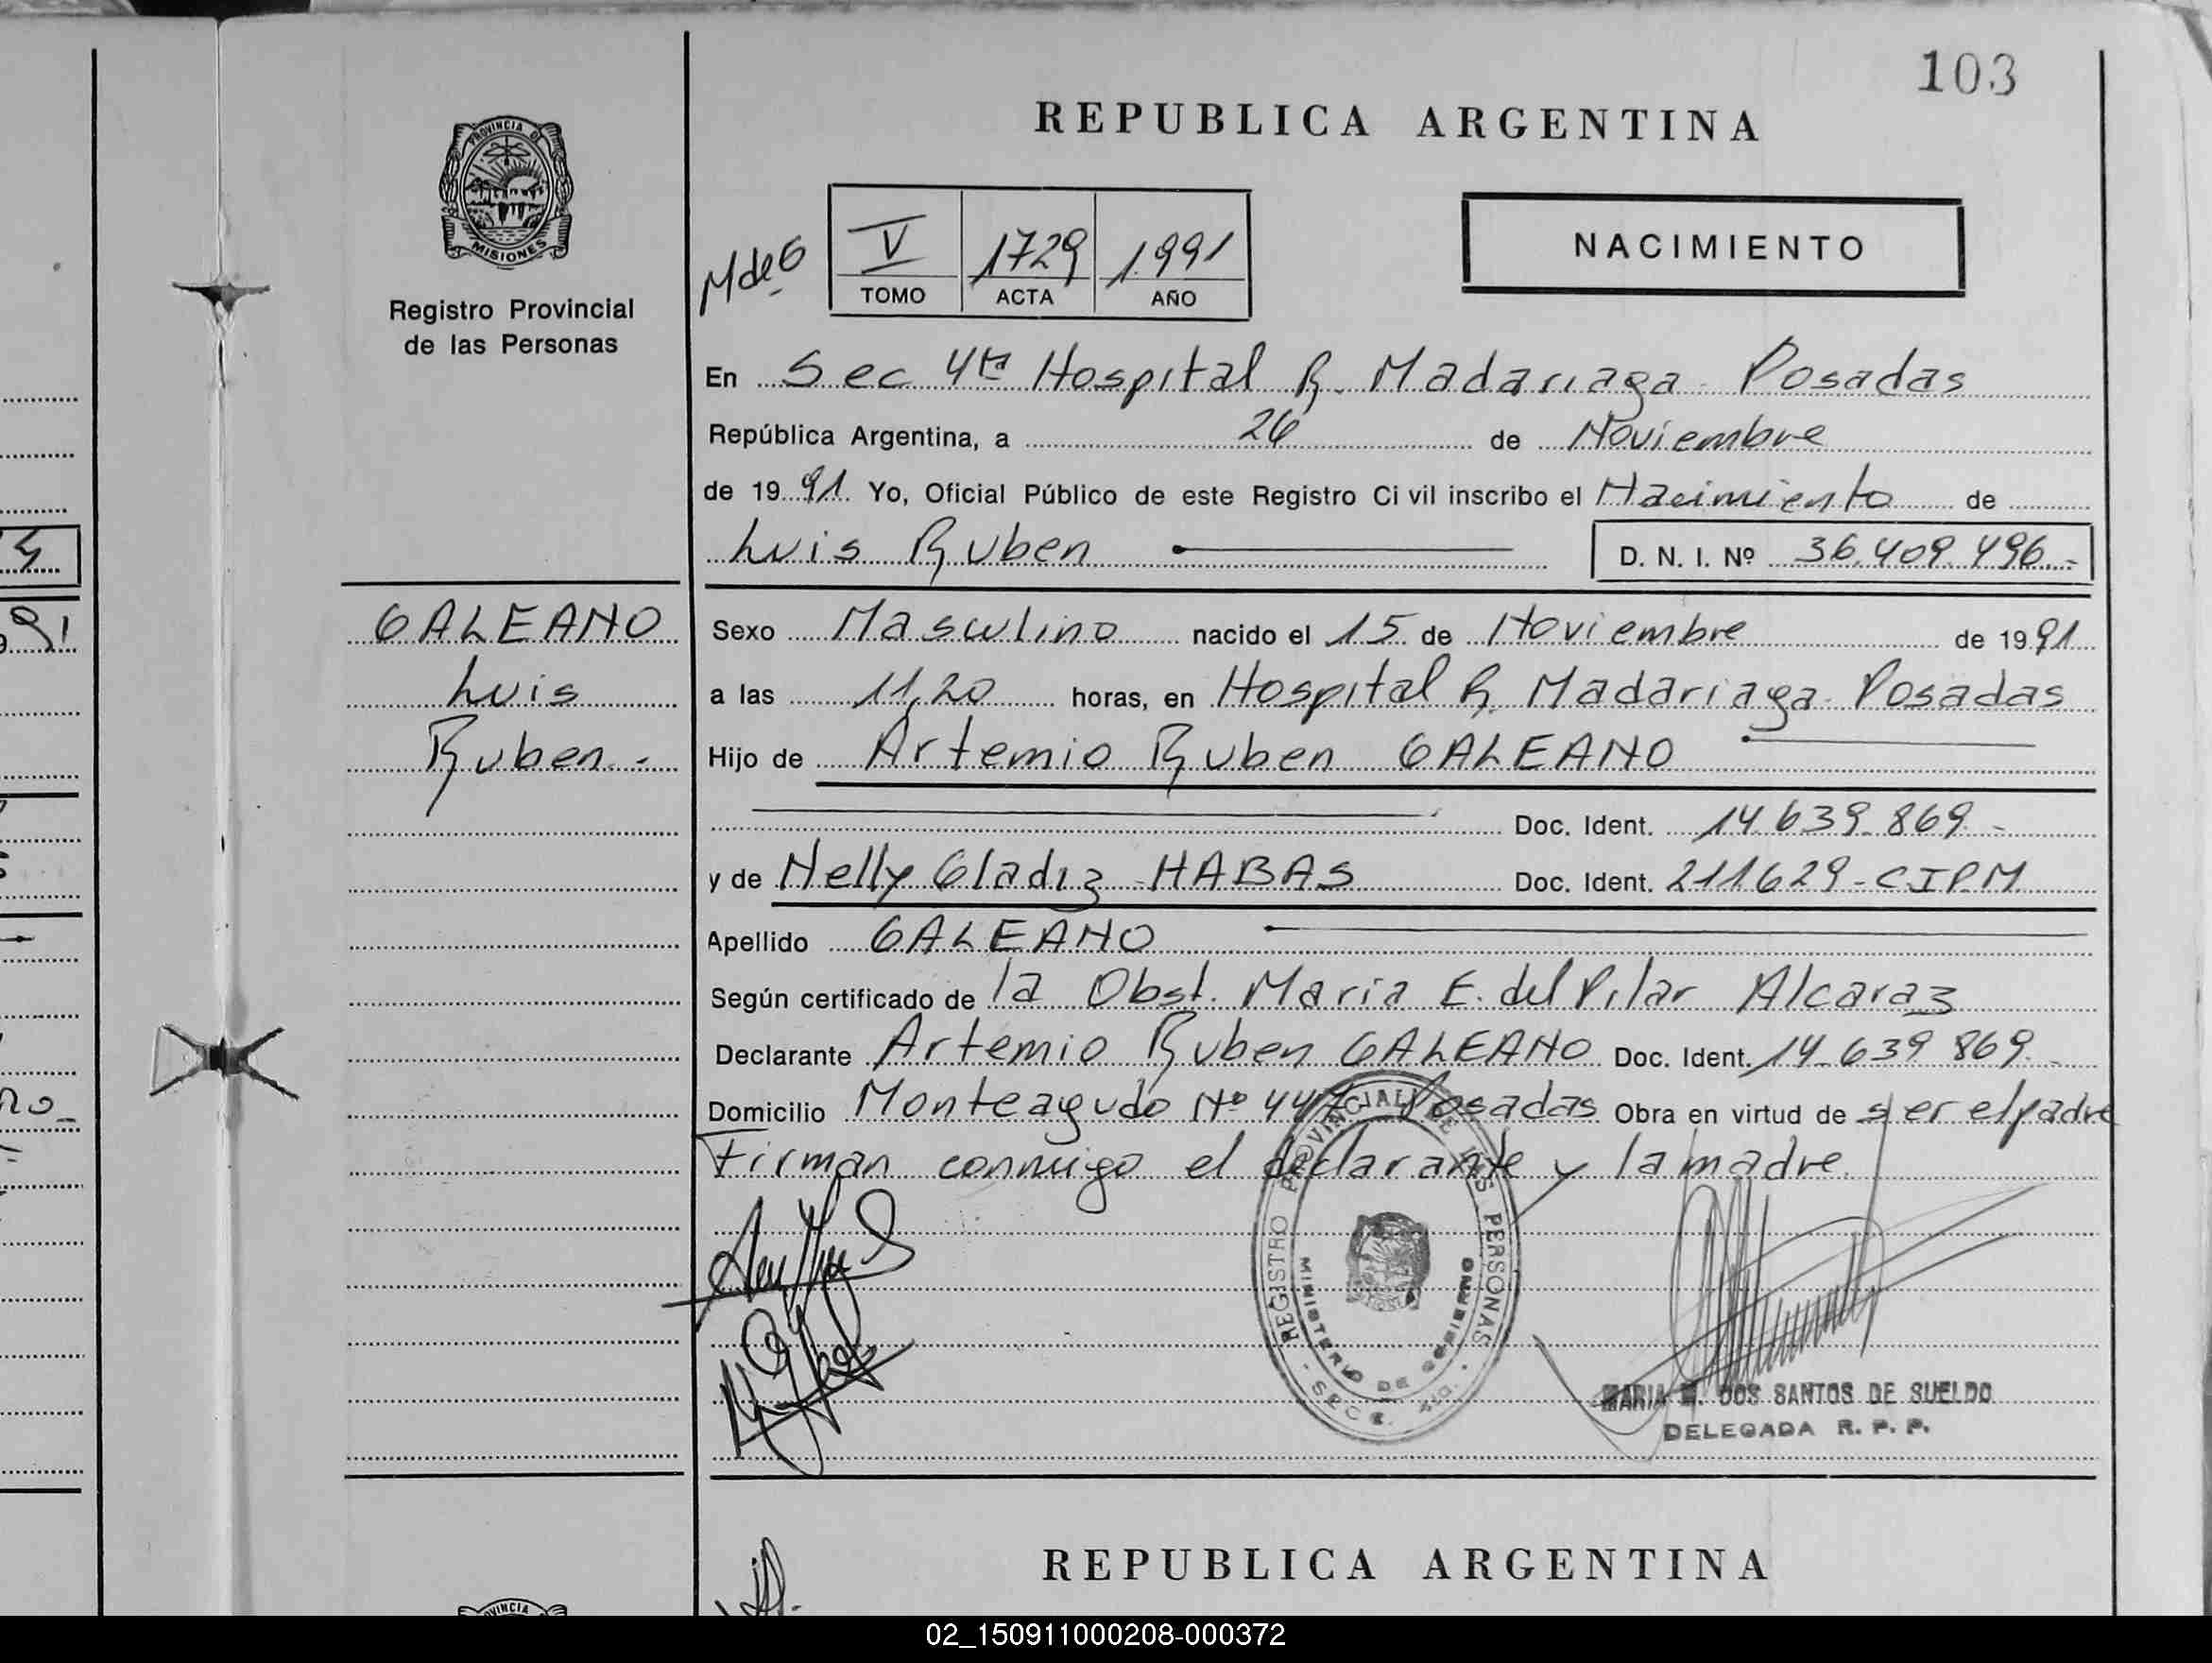 103
REPUBLICA ARGENTINA
PROVINCIA DE
MISIONES
Registro Provincial
de las Personas
M de G
V 1729 1.991
TOMO ACTA AÑO
NACIMIENTO
En Sec 4ta Hospital R. Madariaga Posadas
República Argentina, a 26 de Noviembre
de 1991. Yo, Oficial Público de este Registro Ci vil inscribo el Nacimiento de
Luis Ruben D. N. I. Nº 36.409.496.-
GALEANO
Luis
Ruben.-
Sexo Masculino nacido el 15 de Noviembre de 1991
a las 11,20 horas, en Hospital R. Madariaga Posadas
Hijo de Artemio Ruben GALEANO
Doc. Ident. 14.639.869.-
y de Nelly Gladiz HABAS Doc. Ident. 211629-CIPM
Apellido GALEANO
Según certificado de la Obst. Maria E. del Pilar Alcaraz
Declarante Artemio Ruben GALEANO Doc. Ident. 14.639.869.-
Domicilio Monteagudo Nº Posadas Obra en virtud de ser el padre
Firman conmigo el declarante y la madre.
REGISTRO PROVINCIAL DE LAS PERSONAS
MINISTERIO DE GOBIERNO
SECC. 4ta.
MARIA DOS SANTOS DE SUELDO
DELEGADA R. P. P.
REPUBLICA ARGENTINA
VINCIA
02_150911000208-000372